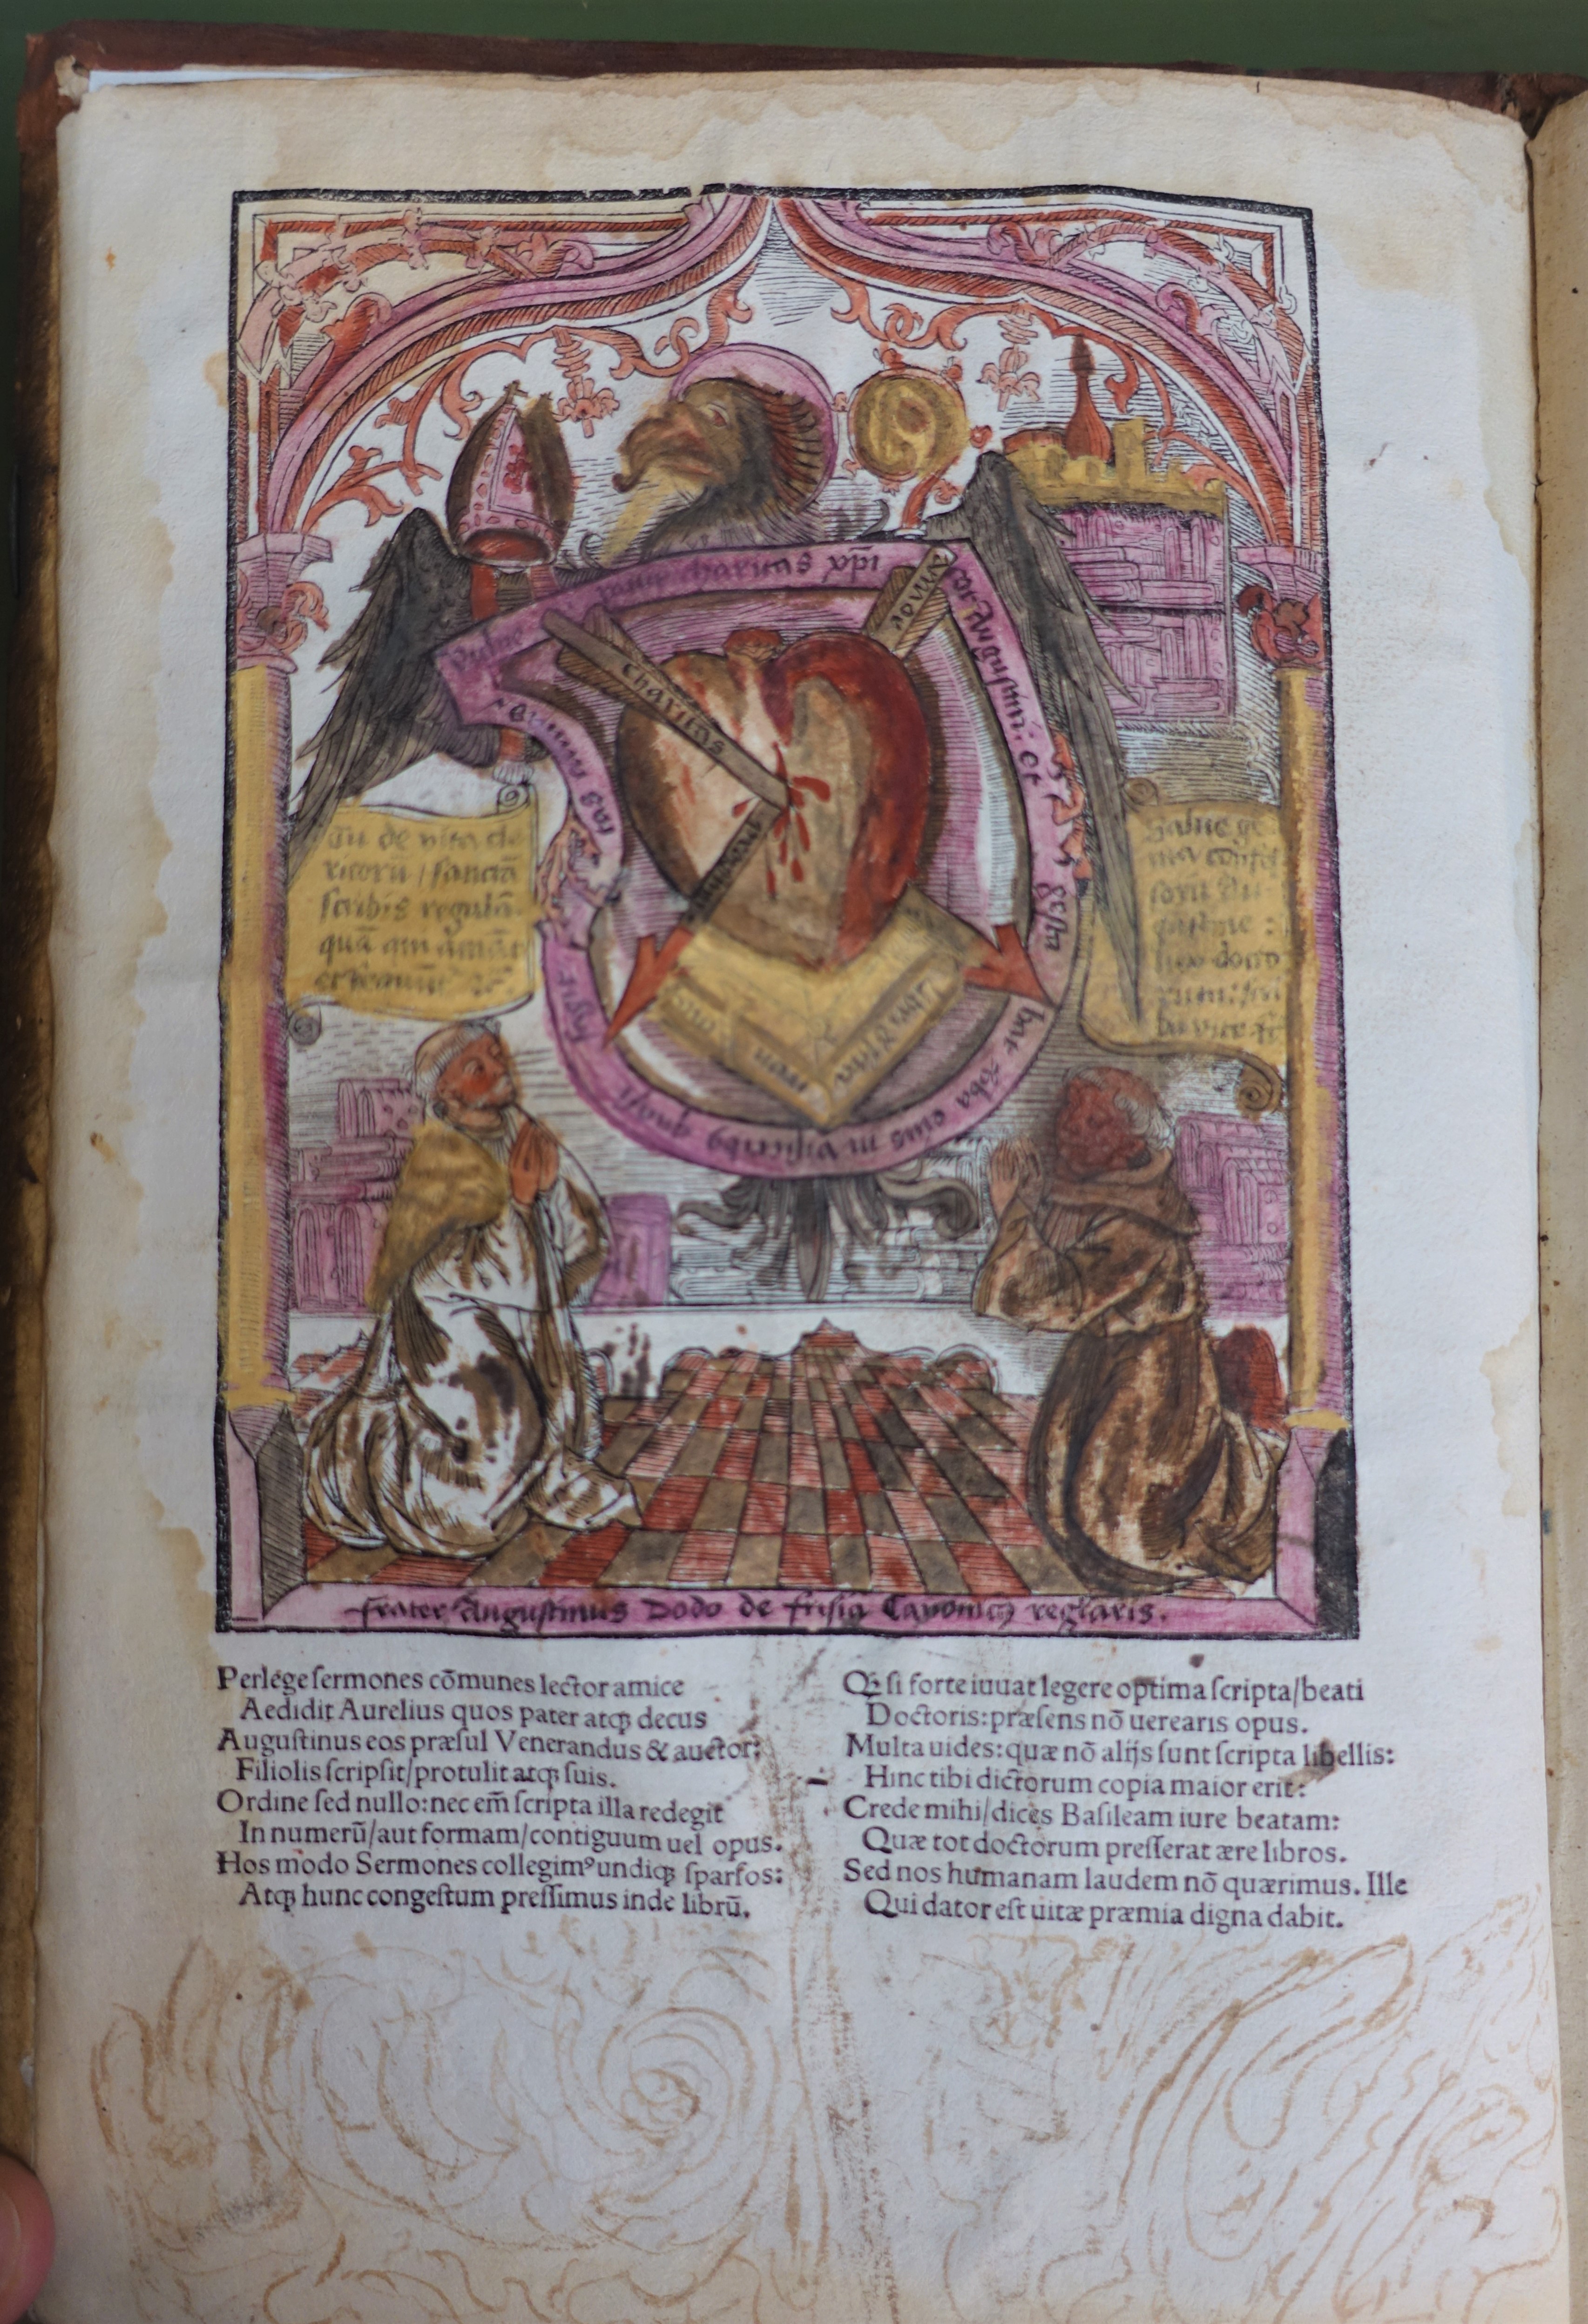 charitas xp̄i
cor Augustini: et
gesta
bat v̄ba eius in visceribꝰ quasi
charitas
amor
Tu de vita cle
ricorū / sanctā
scribis regulā
quā qui amāt
Salue ge
ma confes
sorū Au
gustine:
lux docto
rum:
frater Augustinus Dodo de frisia Canonicꝰ reglaris.
Perlége ſermones cōmunes lector amice
Aedidit Aurelius quos pater atqꝫ decus
Auguſtinus eos præſul Venerandus & auctor:
Filiolis ſcripſit/protulit atqꝫ ſuis.
Ordine ſed nullo: nec em̄ ſcripta illa redegit
In numerū/aut formam/contiguum uel opus.
Hos modo Sermones collegimꝰ undiqꝫ ſparſos:
Atqꝫ hunc congeſtum preſſimus inde librū.
Qꝫ ſi forte iuuat legere optima ſcripta/beati
Doctoris: præſens nō uerearis opus.
Multa uides: quæ nō alijs ſunt ſcripta libellis:
Hinc tibi dictorum copia maior erit:
Crede mihi/dices Baſileam iure beatam:
Quæ tot doctorum preſſerat ære libros.
Sed nos humanam laudem nō quærimus. Ille
Qui dator eſt uitæ præmia digna dabit.